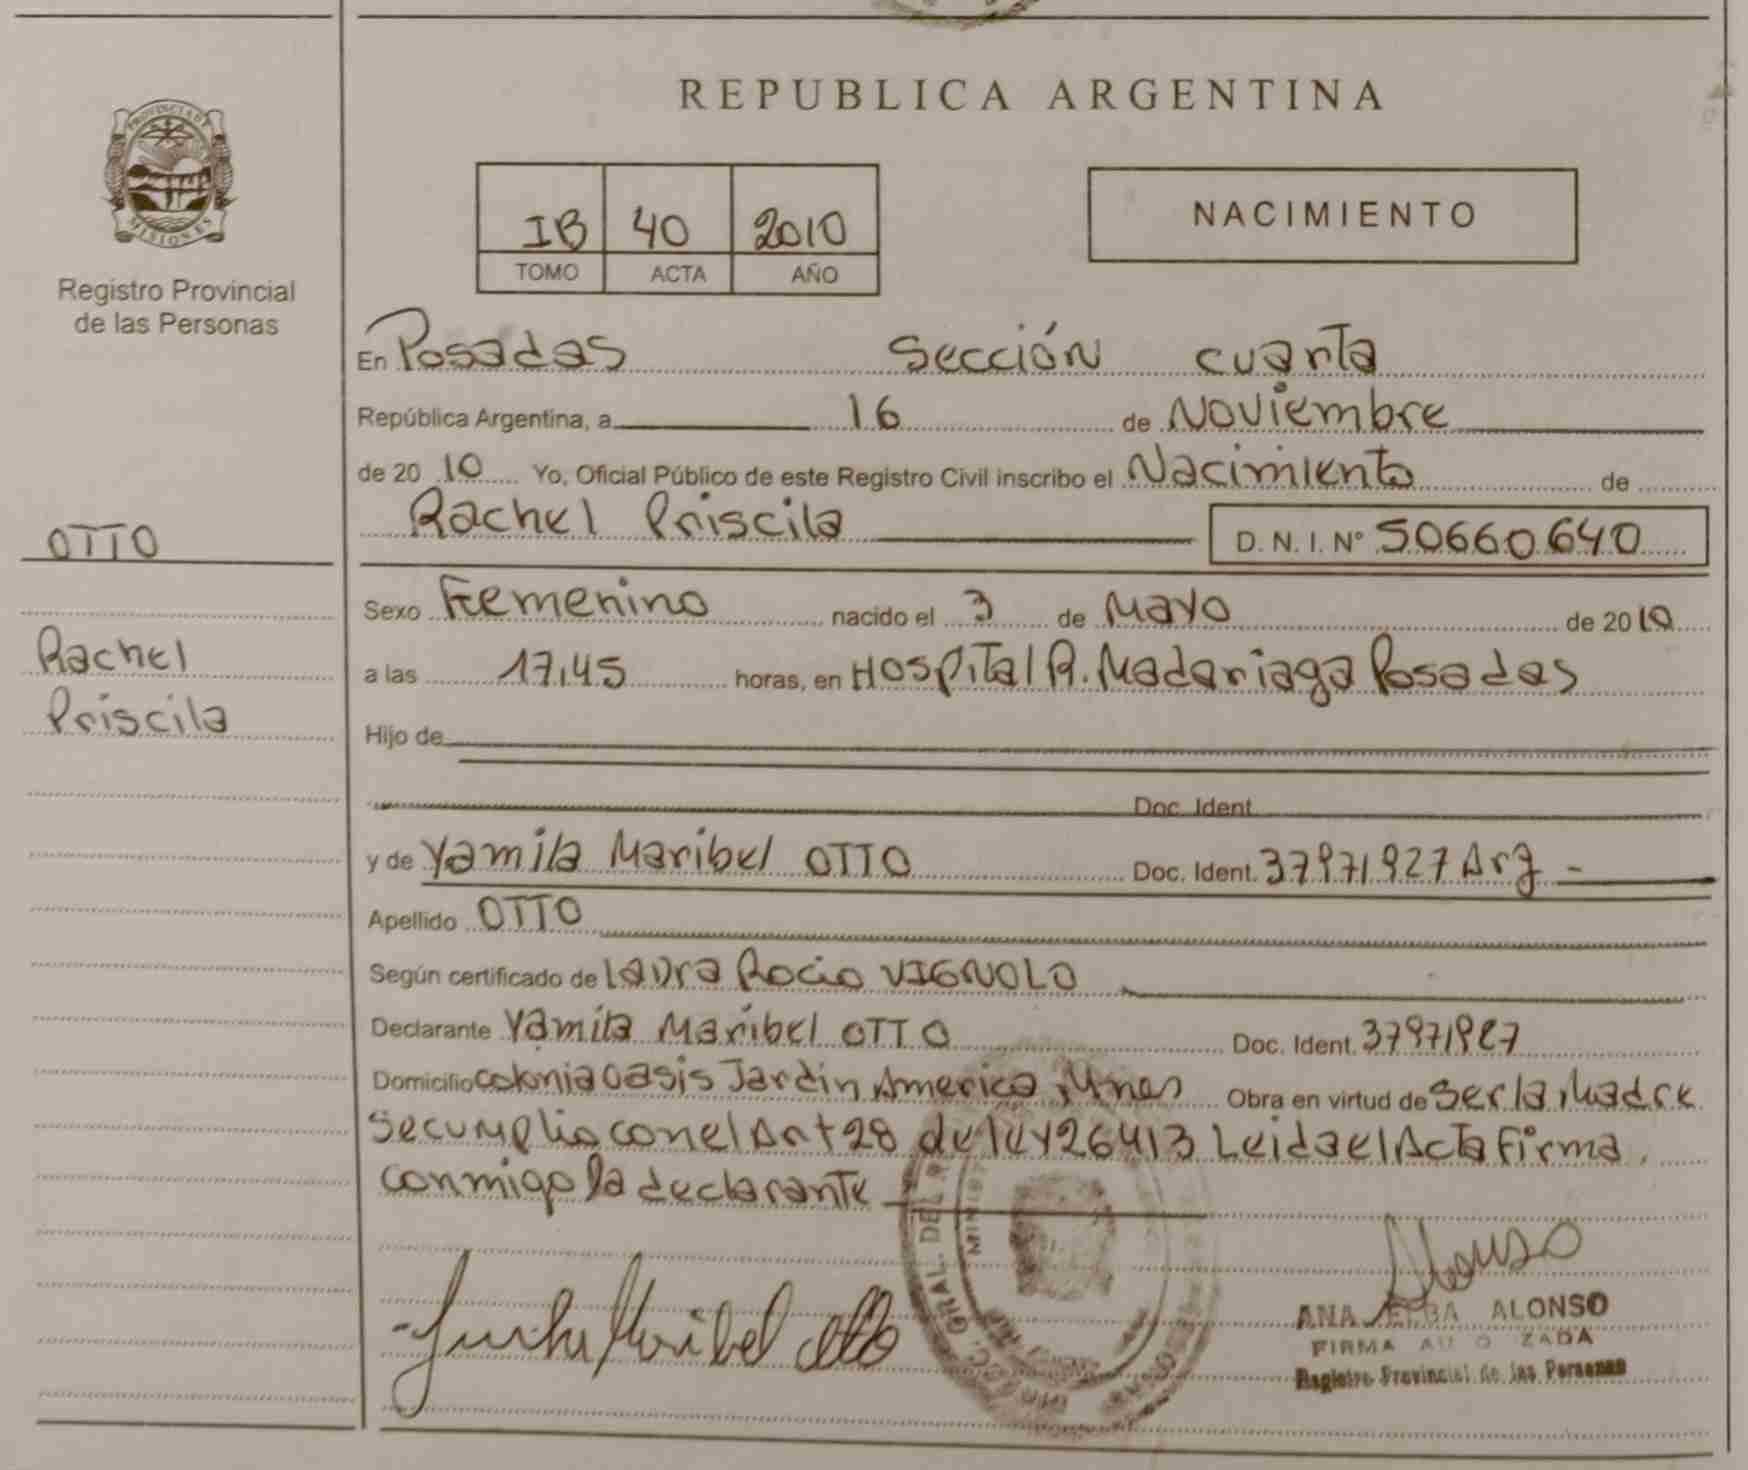 REPUBLICA ARGENTINA
PROVINCIA DE
MISIONES
Registro Provincial
de las Personas
IB 40 2010
TOMO ACTA AÑO
NACIMIENTO
En Posadas Sección cuarta
República Argentina, a 16 de Noviembre
de 20 10 Yo, Oficial Público de este Registro Civil inscribo el Nacimiento de
Rachel Priscila D. N. I. N° 50660640
OTTO
Rachel
Priscila
Sexo Femenino nacido el 3 de Mayo de 2010
a las 17,45 horas, en Hospital R. Madariaga Posadas
Hijo de
Doc. Ident.
y de Yamila Maribel OTTO Doc. Ident. 37971927 Arg -
Apellido OTTO
Según certificado de Laura Rocio VIGNOLO
Declarante Yamila Maribel OTTO Doc. Ident. 37971927
Domicilio colonia Oasis Jardin America, Mnes Obra en virtud de ser la Madre
Se cumplio con el Art 28 de ley 26413 Leida el Acta firma
conmigo la declarante
Maribel Otto
Alonso
ANA ELBA ALONSO
FIRMA AU O ZADA
Registro Provincial de las Personas
GRAL. DEL R
MINIST